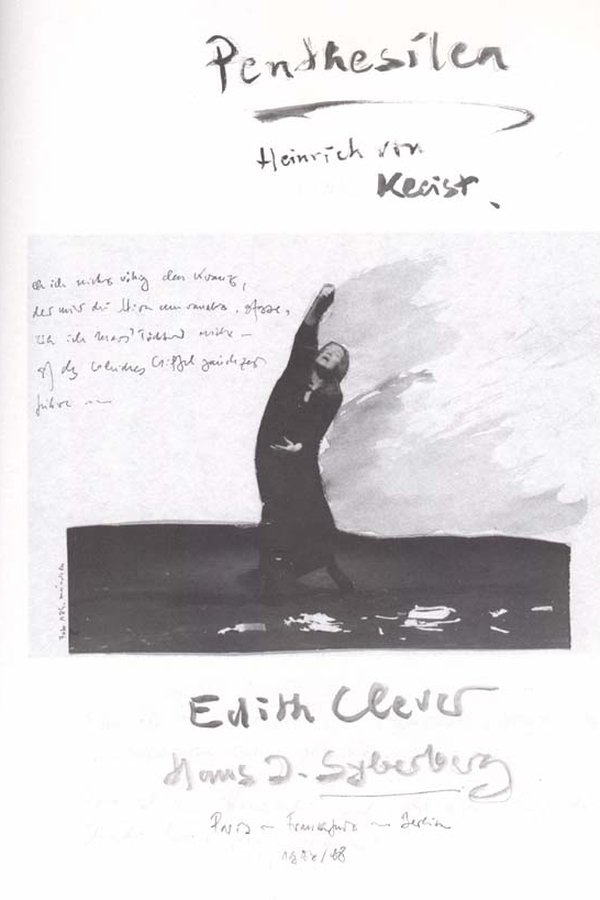 Penthesilea
Heinrich von
Kleist.
Eh ich nicht völlig den Kranz,
der mir die Stirn umrauscht, erfasse,
Eh ich Mars' Töchter nicht –
auf des Glückes Gipfel jauchzend
führe –
Edith Clever
Hans J. Syberberg
Paris – Frankfurt – Berlin
1987/88